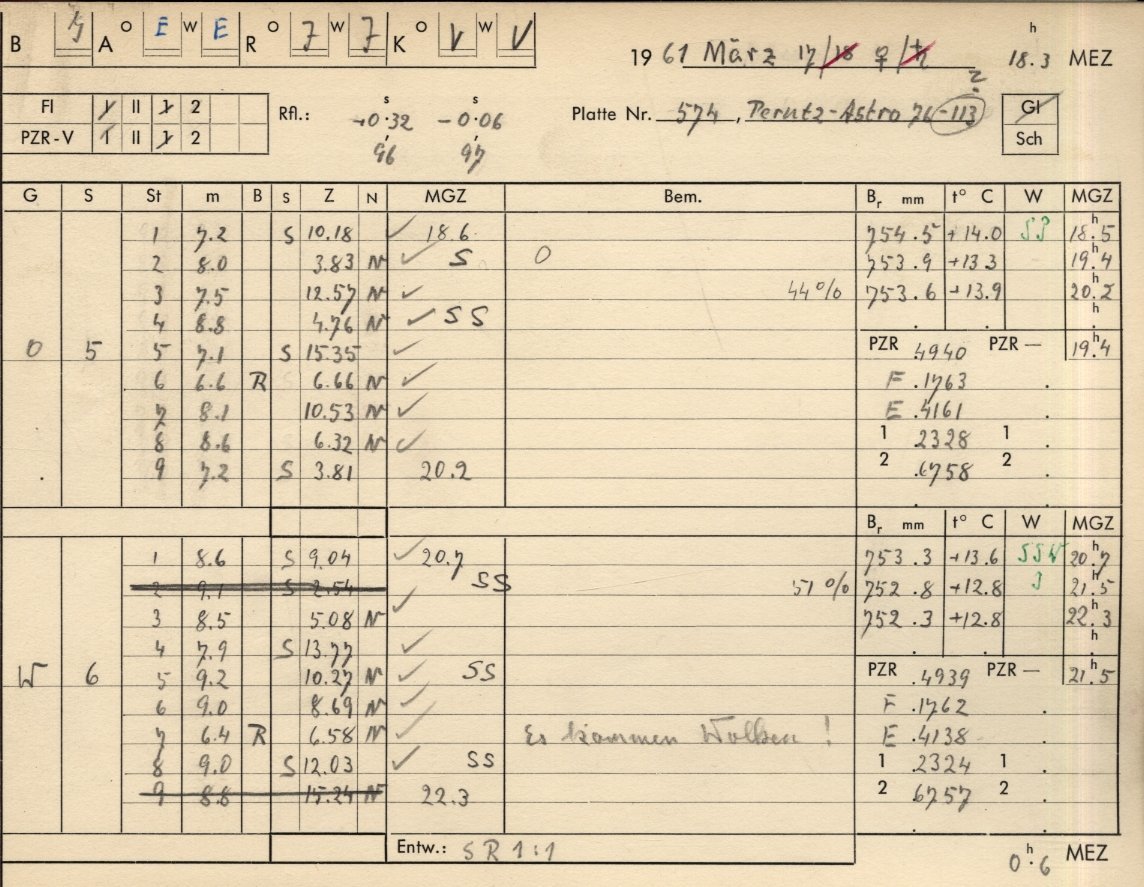 B A O E W E R O 7 W 7 K O V W V
1961 März 17/18 ♀/♄ 18.3 h MEZ
Fl I II 1 2 Rfl.: -0.32 s -0.06 s Platte Nr. 574, Perutz-Astro 76-113 ? Gl
PZR-V 1 II 1 2 96 97 Sch
G S St m B S Z N MGZ Bem. Br mm t° C W MGZ
1 7.2 S 10.18 ✓ 18.6 754.5 +14.0 18.5 h
2 8.0 3.83 N ✓ S O 753.9 +13.3 19.4 h
3 7.5 12.57 N ✓ 44% 753.6 +13.9 20.2 h
4 8.8 4.76 N ✓ SS . . . h
O 5 5 7.1 S 15.35 ✓ PZR .4940 PZR — 19.4
6 6.6 R 6.66 N ✓ F .1763 .
7 8.1 10.53 N ✓ E .4161 .
8 8.6 6.32 N ✓ 1 .2328 1 .
. 9 7.2 S 3.81 20.2 2 .6758 2 .
Br mm t° C W MGZ
1 8.6 S 9.04 ✓ 20.7 753.3 +13.6 SSW 20.7 h
2 9.1 S 2.54 SS 51% 752.8 +12.8 S 21.5 h
3 8.5 5.08 N ✓ 752.3 +12.8 22.3 h
4 7.9 S 13.77 ✓ . . . h
W 6 5 9.2 10.27 N ✓ SS PZR .4939 PZR — 21.5
6 9.0 8.69 N ✓ F .1762 .
7 6.4 R 6.58 N ✓ Es kommen Wolken! E .4138 .
8 9.0 S 12.03 ✓ SS 1 .2324 1 .
9 8.8 15.24 N 22.3 2 .6757 2 .
Entw.: SR 1:1 0.6 h MEZ